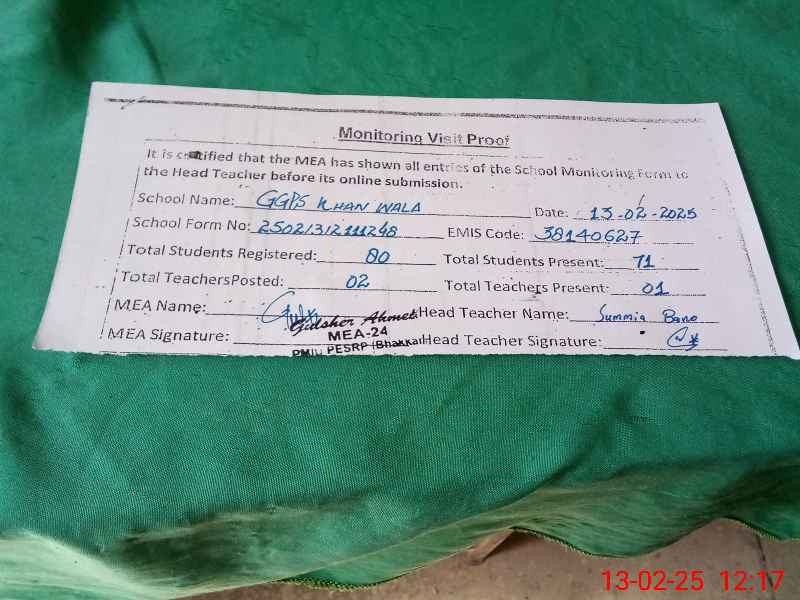 Monitoring Visit Proof
It is certified that the MEA has shown all entries of the School Monitoring Form to
the Head Teacher before its online submission.
School Name: GGPS KHAN WALA Date: 13-02-2025
School Form No: 2502131211248 EMIS Code: 38140627
Total Students Registered: 80 Total Students Present: 71
Total TeachersPosted: 02 Total Teachers Present: 01
MEA Name: Gulsher Ahmed Head Teacher Name: Summia Bano
MEA-24
MEA Signature: PMIU PESRP (Bhakkar Head Teacher Signature:
13-02-25 12:17